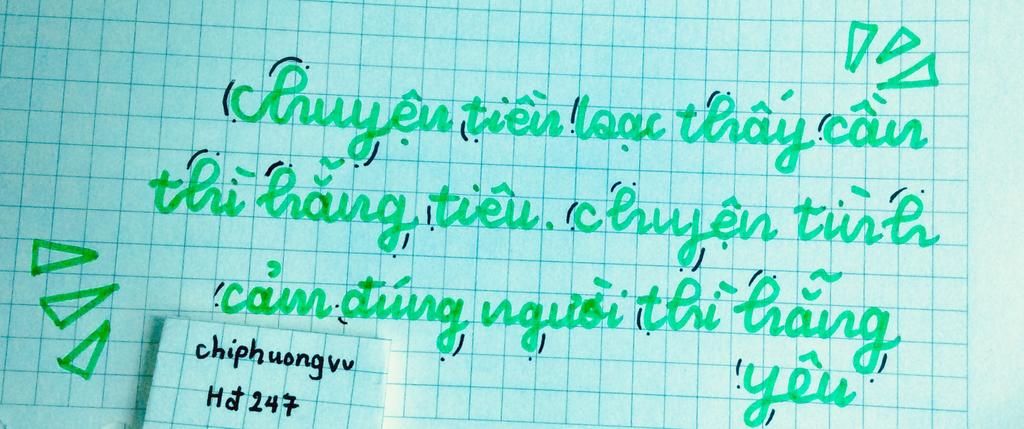 chuyện tiền bạc thấy cần
thì hẵng tiêu. chuyện tình
cảm đúng người thì hẵng
yêu
chiphuongvv
Hđ 247